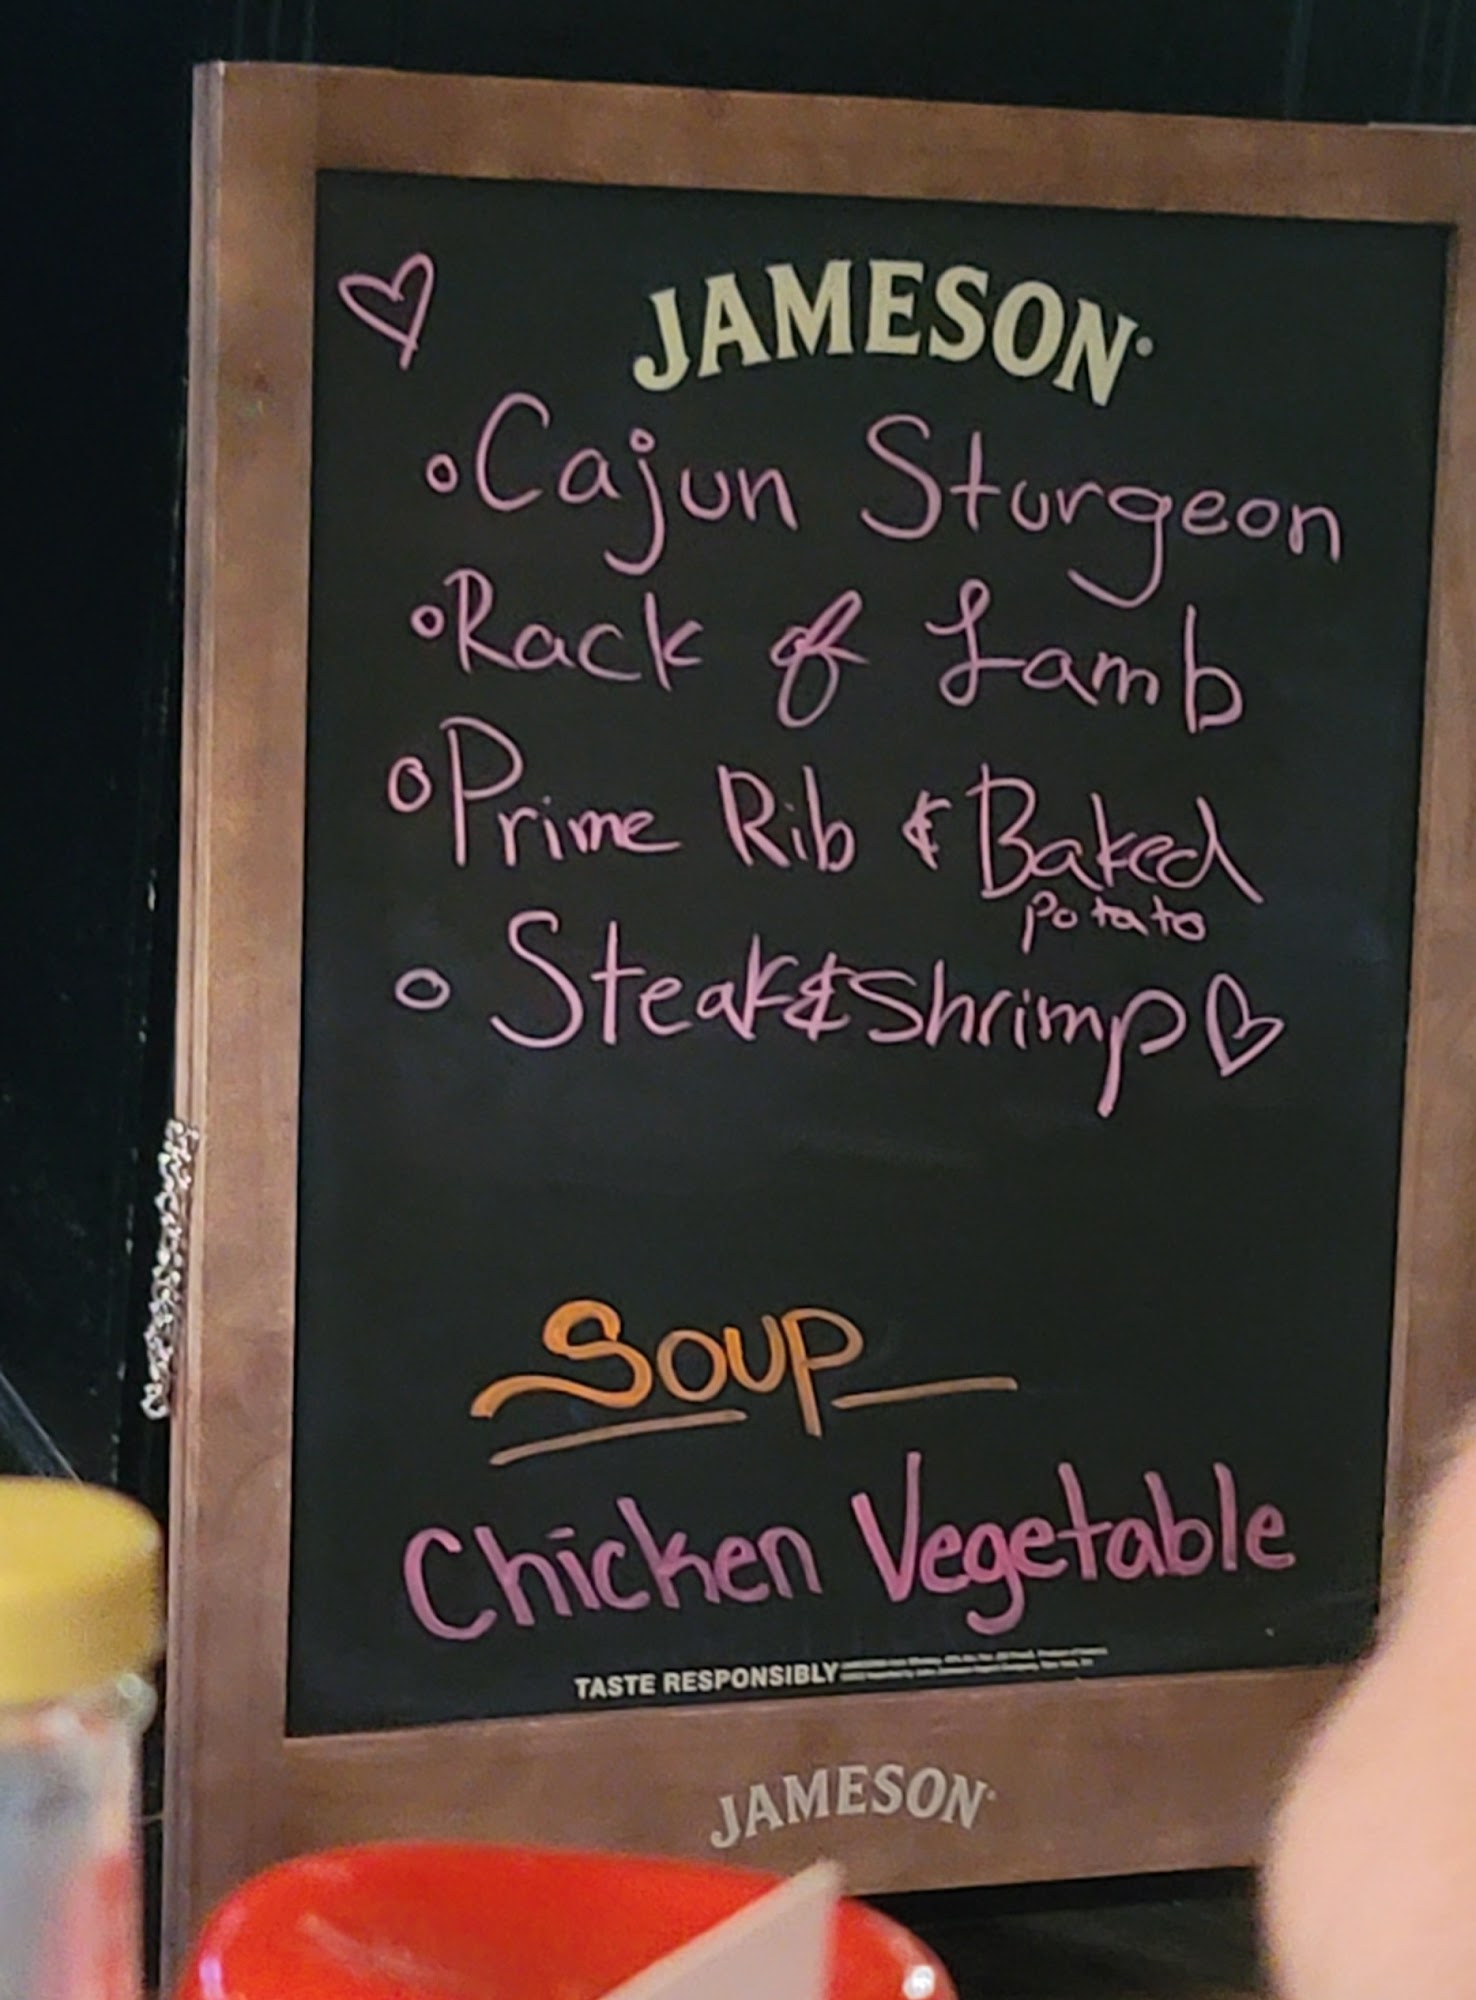 JAMESON
Cajun Sturgeon
Rack of Lamb
Prime Rib & Baked
potato
Steak & Shrimp
Soup
Chicken Vegetable
TASTE RESPONSIBLY
JAMESON